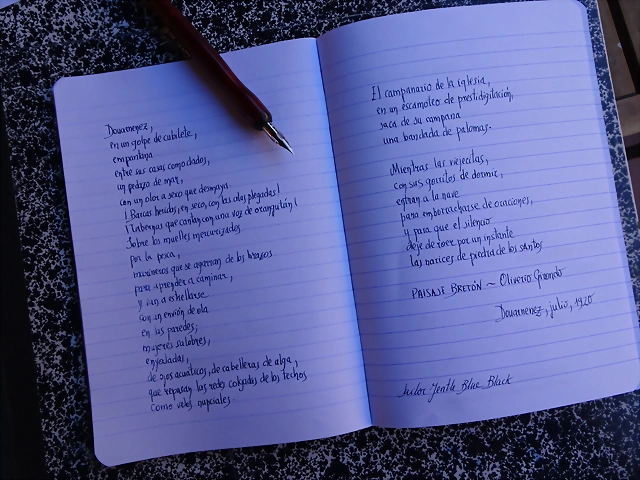 Douarnenez,
en un golpe de cubilete,
empantana
entre sus casas como dados,
un pedazo de mar,
con un olor a sexo que desmaya.
¡Barcas heridas, en seco, con las alas plegadas!
¡Tabernas que cantan con una voz de orangután!
Sobre los muelles mercurizados
por la pesca,
marineros que se agarran de los brazos
para aprender a caminar,
y van a estrellarse
con un envión de ola
en las paredes;
mujeres salobres,
enyodadas,
de ojos acuáticos, de cabelleras de alga,
que repasan las redes colgadas de los techos
como velos nupciales.
El campanario de la iglesia,
en un escamoteo de prestidigitación,
saca de su campana
una bandada de palomas.
Mientras las viejecitas,
con sus gorritos de dormir,
entran a la nave
para emborracharse de oraciones,
y para que el silencio
deje de roer por un instante
las narices de piedra de los santos
PAISAJE BRETÓN ~ Oliverio Girondo
Douarnenez, julio, 1920
Sailor Jentle Blue Black